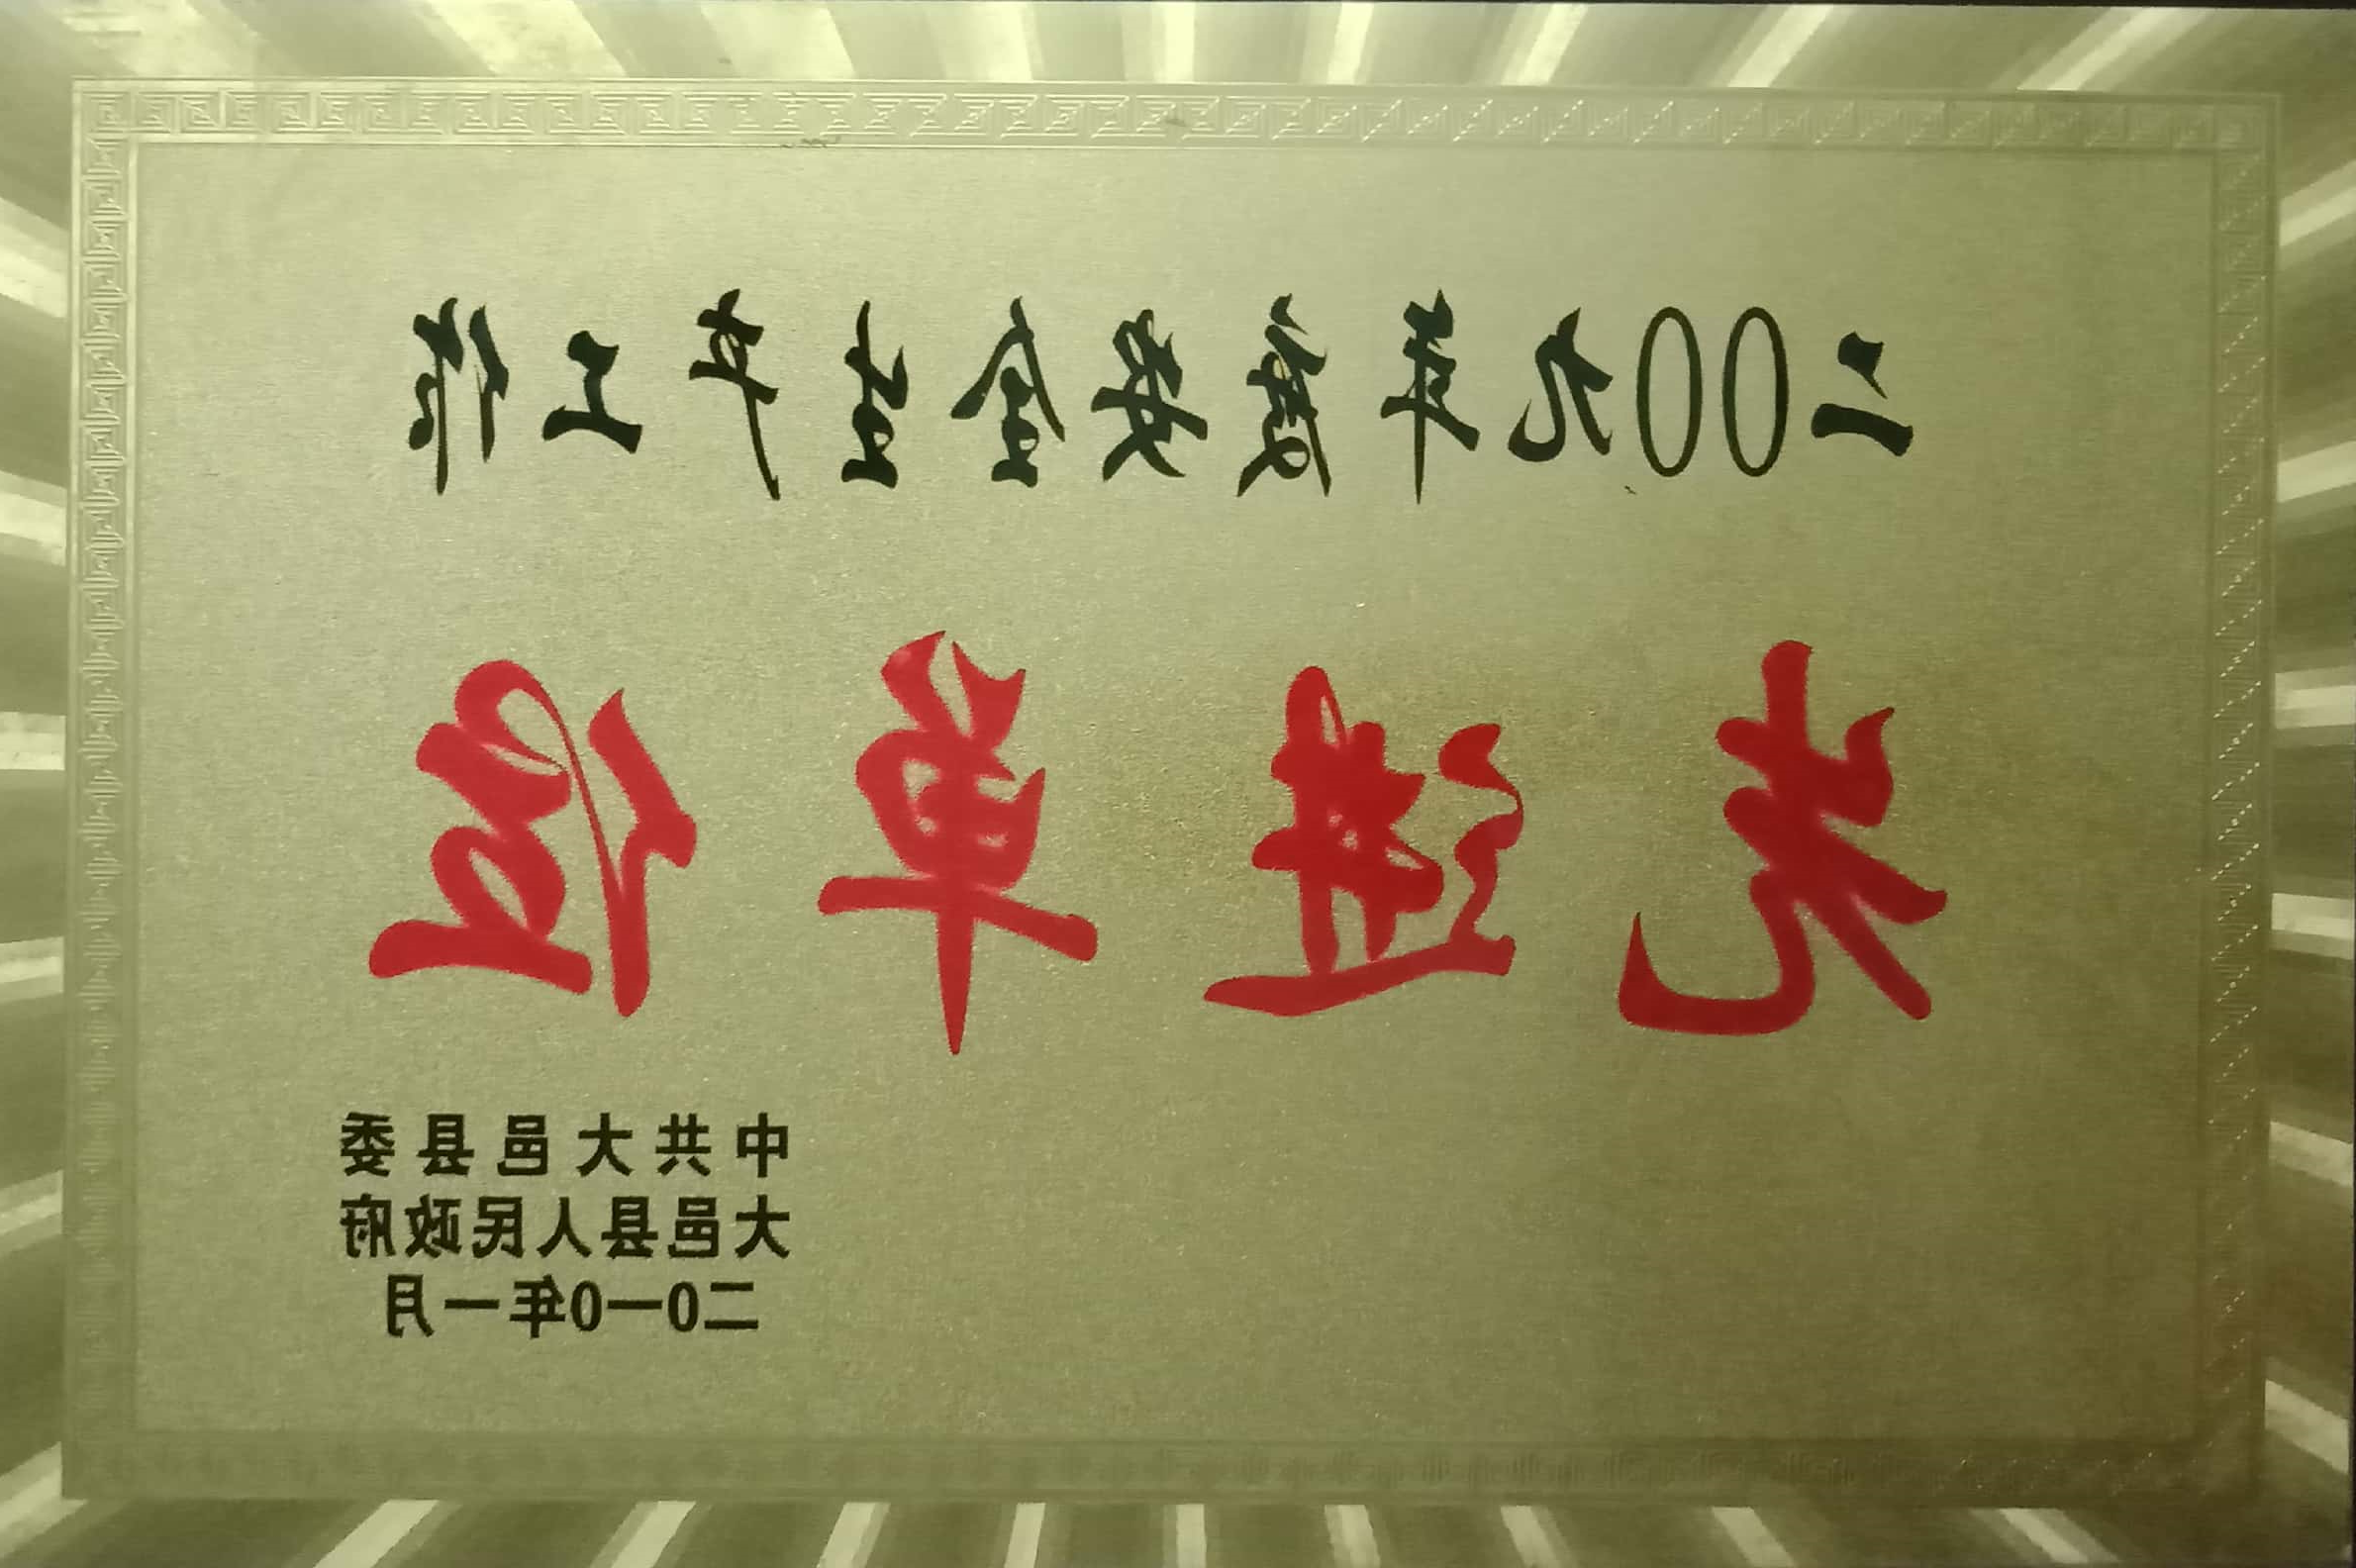 二00九年度安全生产工作
先进单位
中共大邑县委
大邑县人民政府
二0一0年一月